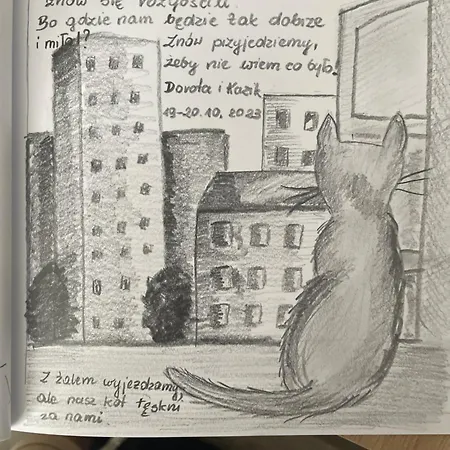 znów się rozgościł
Bo gdzie nam będzie tak dobrze
i miło!?
Znów przyjedziemy,
żeby nie wiem co było!
Dorota i Kazik
19-20.10.2023
Z żalem wyjeżdzamy,
ale nasz kot tęskni
za nami.